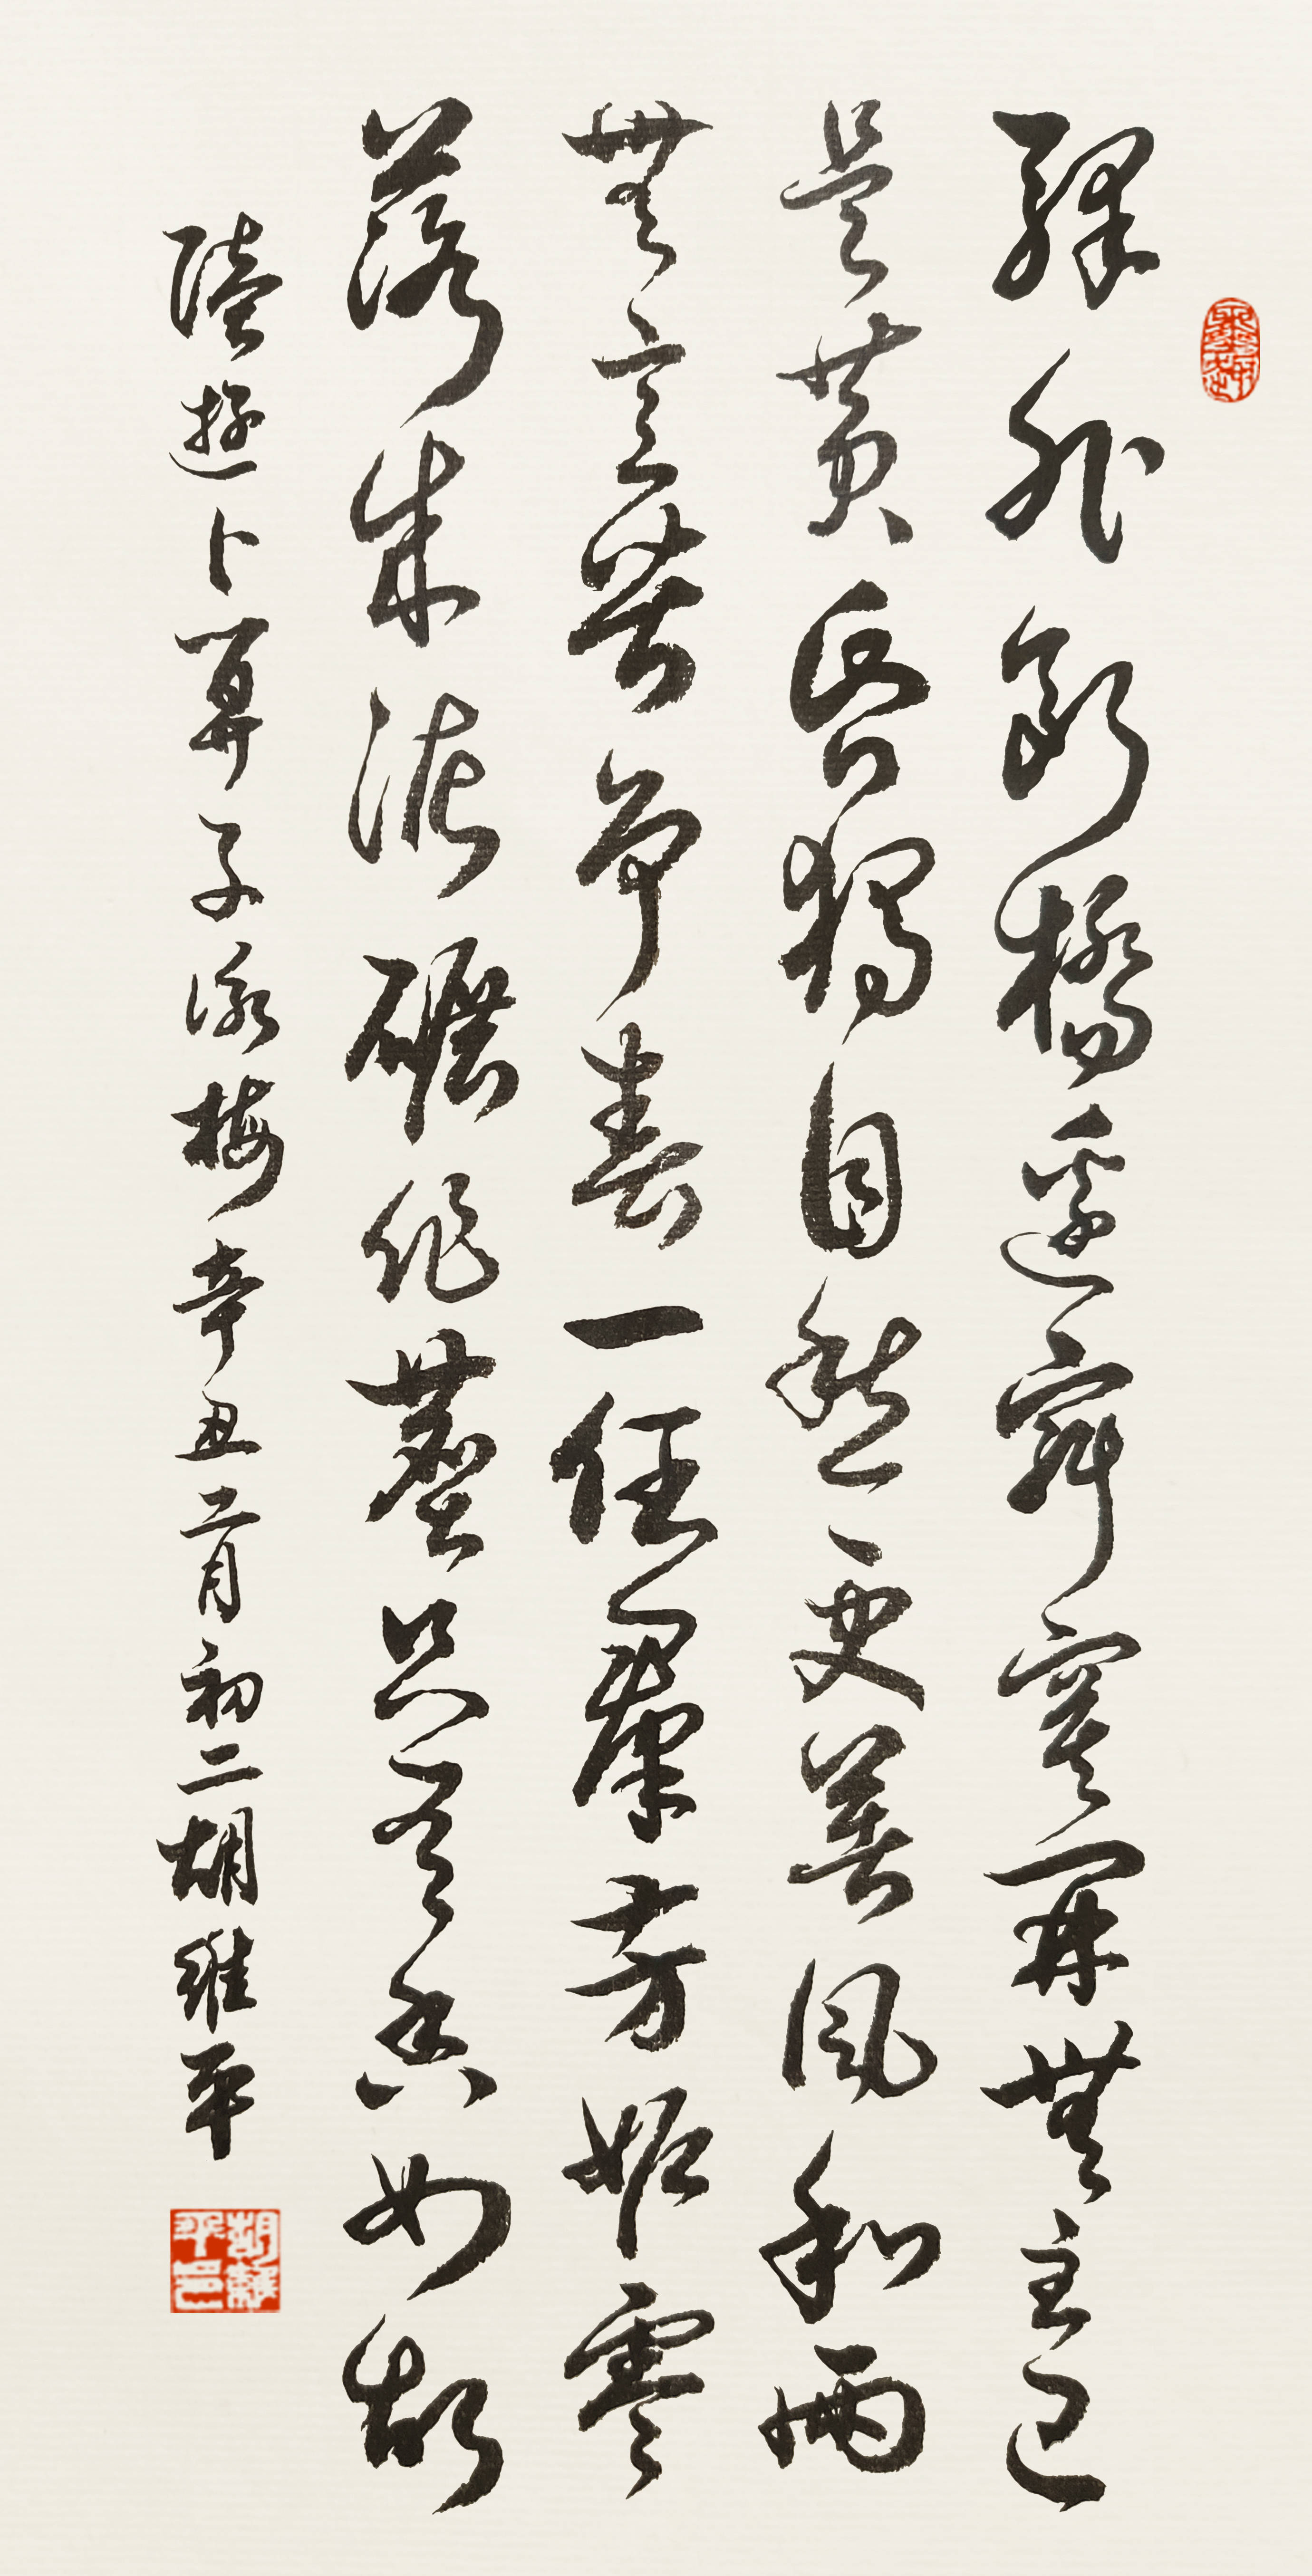 驛外斷橋邊寂寞開無主已
是黃昏獨自愁更著風和雨
無意苦爭春一任羣芳妒零
落成泥碾作塵只有香如故
陸遊卜算子詠梅辛丑二月初二胡維平
胡維平印